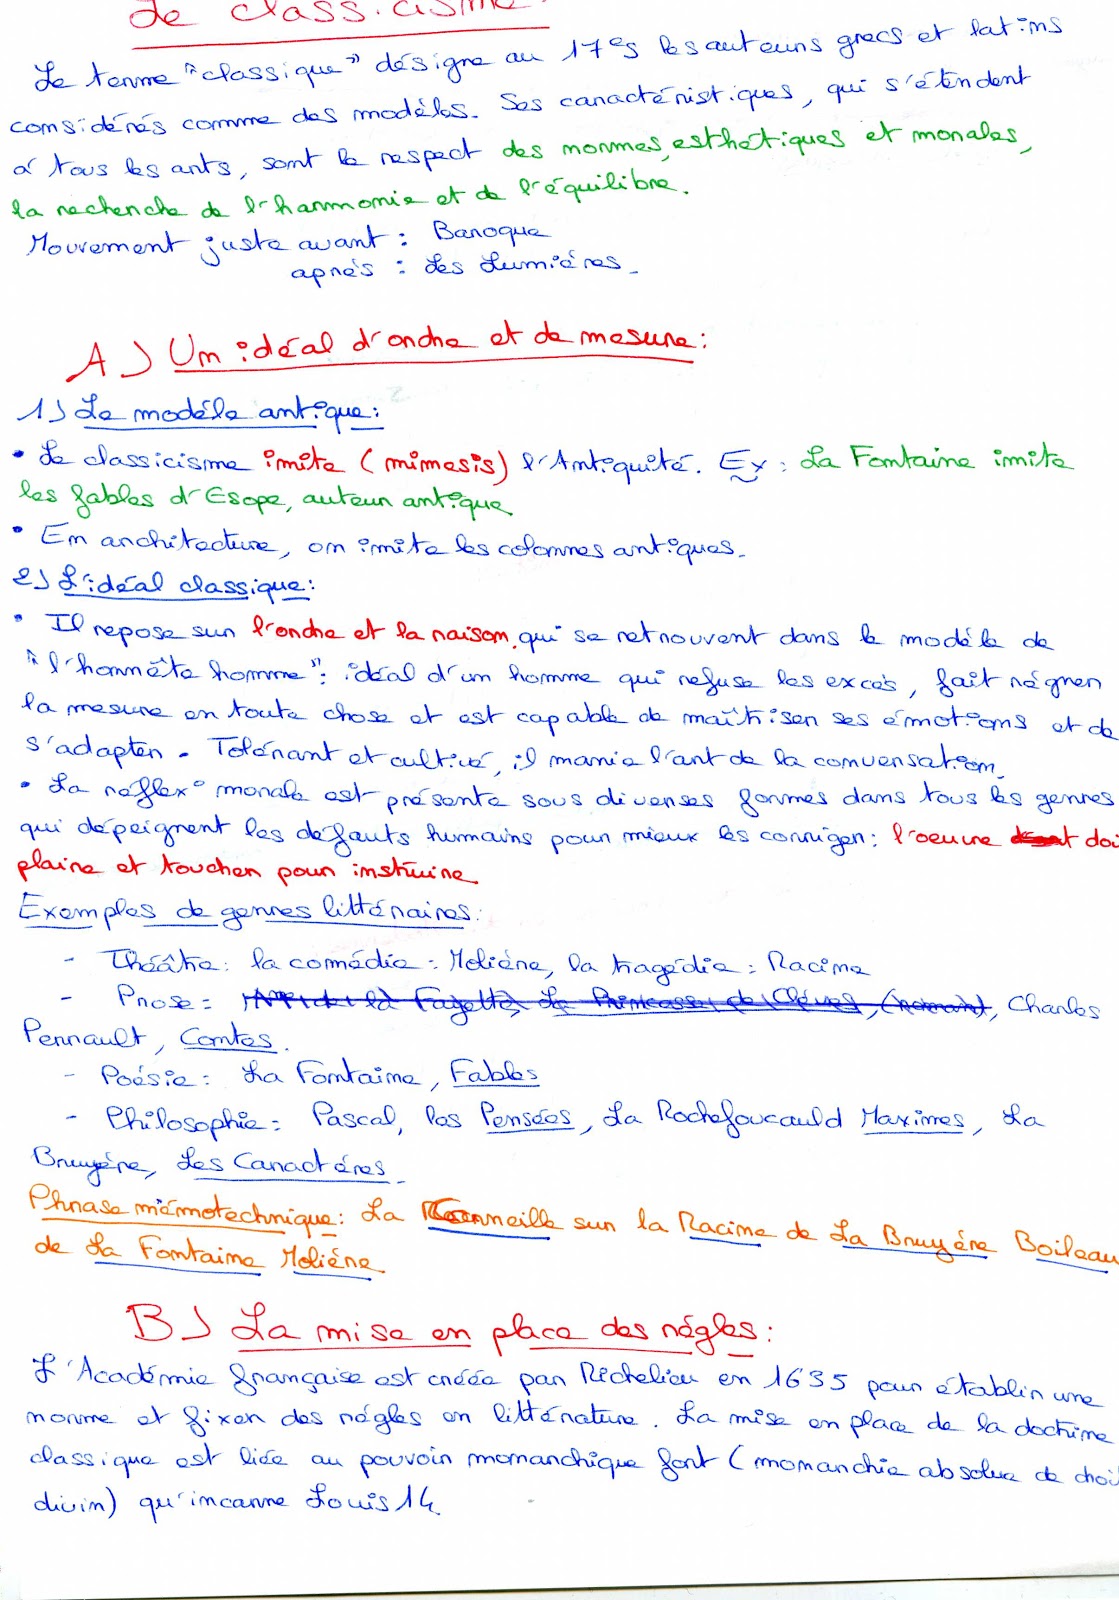 Le classicisme:
Le terme "classique" désigne au 17es les auteurs grecs et latins
considérés comme des modèles. Ses caractéristiques, qui s'étendent
à tous les arts, sont le respect des normes esthétiques et morales,
la recherche de l'harmonie et de l'équilibre.
Mouvement juste avant : Baroque
après : Les Lumières.
A) Un idéal d'ordre et de mesure:
1) Le modèle antique:
• Le classicisme imite (mimesis) l'Antiquité. Ex: La Fontaine imite
les fables d'Esope, auteur antique
• En architecture, on imite les colonnes antiques.
2) L'idéal classique:
• Il repose sur l'ordre et la raison, qui se retrouvent dans le modèle de
"l'honnête homme": idéal d'un homme qui refuse les excès, fait régner
la mesure en toute chose et est capable de maîtriser ses émotions et de
s'adapter. Tolérant et cultivé, il manie l'art de la conversation.
• La réflex° morale est présente sous diverses formes dans tous les genres
qui dépeignent les défauts humains pour mieux les corriger: l'oeuvre doi
plaire et toucher pour instruire.
Exemples de genres littéraires:
- Théâtre: la comédie: Molière, la tragédie: Racine
- Prose: Mme de la Fayette, La Princesse de Clèves, (roman), Charles
Perrault, Contes.
- Poésie: La Fontaine, Fables
- Philosophie: Pascal, les Pensées, La Rochefoucauld Maximes, La
Bruyère, Les Caractères
Phrase mémotechnique: La Corneille sur la Racine de La Bruyère Boileau
de La Fontaine Molière.
B) La mise en place des règles:
L'Académie française est créée par Richelieu en 1635 pour établir une
norme et fixer des règles en littérature. La mise en place de la doctrine
classique est liée au pouvoir monarchique fort (monarchie absolue de droi
divin) qu'incarne Louis 14.